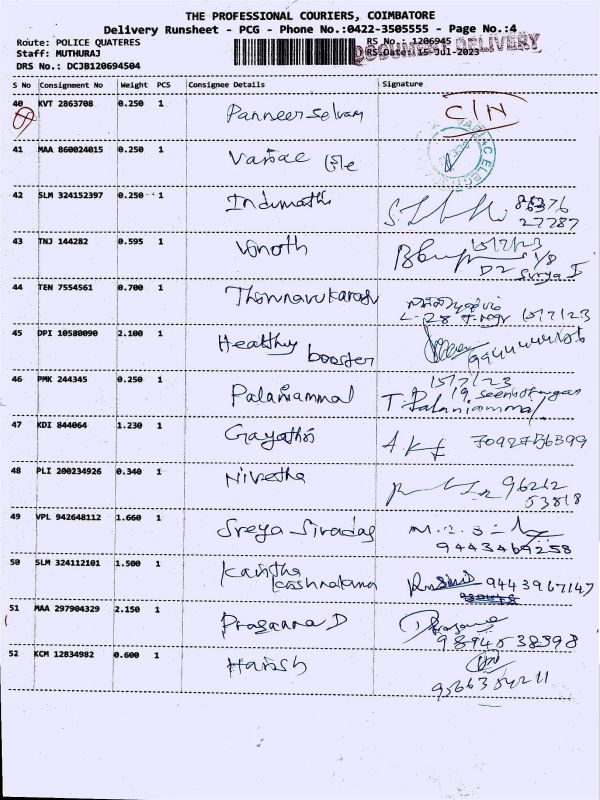 THE PROFESSIONAL COURIERS, COIMBATORE
Delivery Runsheet - PCG - Phone No.:0422-3505555 - Page No.:4
Route: POLICE QUATERES
RS No.: 1206945
Staff: MUTHURAJ
RS Date: 15-Jul-2023
DOCUMENT DELIVERY
DRS No.: DCJB120694504
S No Consignment No Weight PCS Consignee Details Signature
40 KVT 2863708 0.250 1 Panneer selvam C/N
41 MAA 860024015 0.250 1
42 SLM 324152397 0.250 1 Indumathi 86376
27787
43 TNJ 144282 0.595 1 Vinoth 15/7/23
D2 1/8 Surya I
44 TEN 7554561 0.700 1 Thirunavukarasu
L-28 15/7/23
45 DPI 10580090 2.100 1 Healthy booster
46 PMK 244345 0.250 1 Palaniammal 15/7/23
T. Palaniammal
47 KDI 844064 1.230 1 Gayathri
48 PLI 200234926 0.340 1 Nivetha 96262
53818
49 VPL 942648112 1.660 1 Sreya Sivadas
9443469258
50 SLM 324112101 1.500 1 9443967147
51 MAA 297904329 2.150 1 Prasanna D
9894538398
52 KCM 12834982 0.600 1 Harish